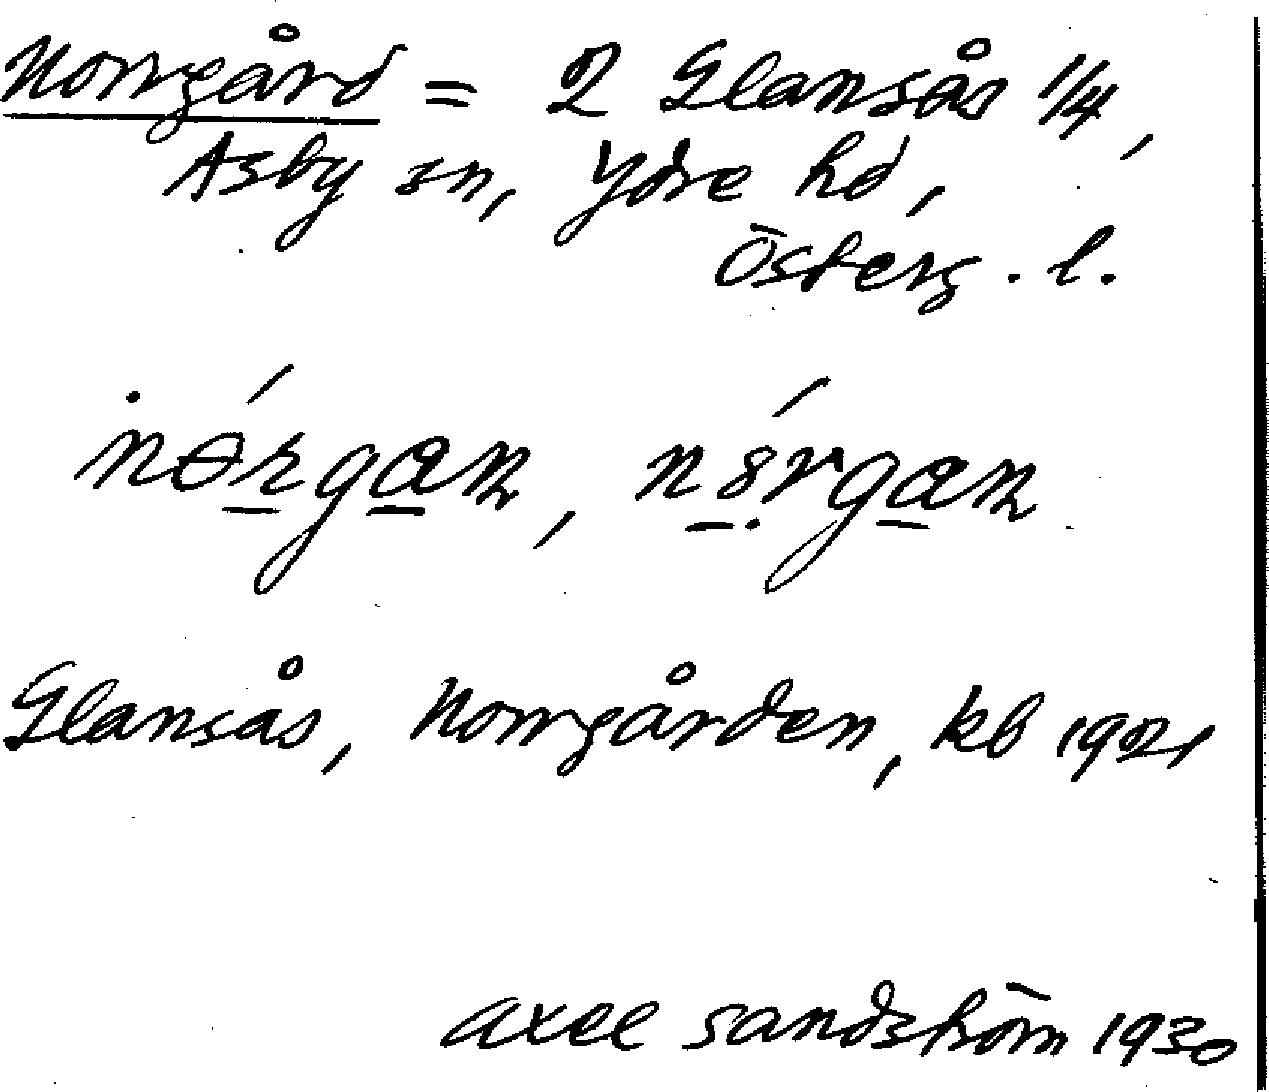 Norrgård = 2 Glansås 1/4,
Asby sn, Ydre hd,
Österg. l.
Glansås, Norrgården, kb 1921
Axel Sandström 1930